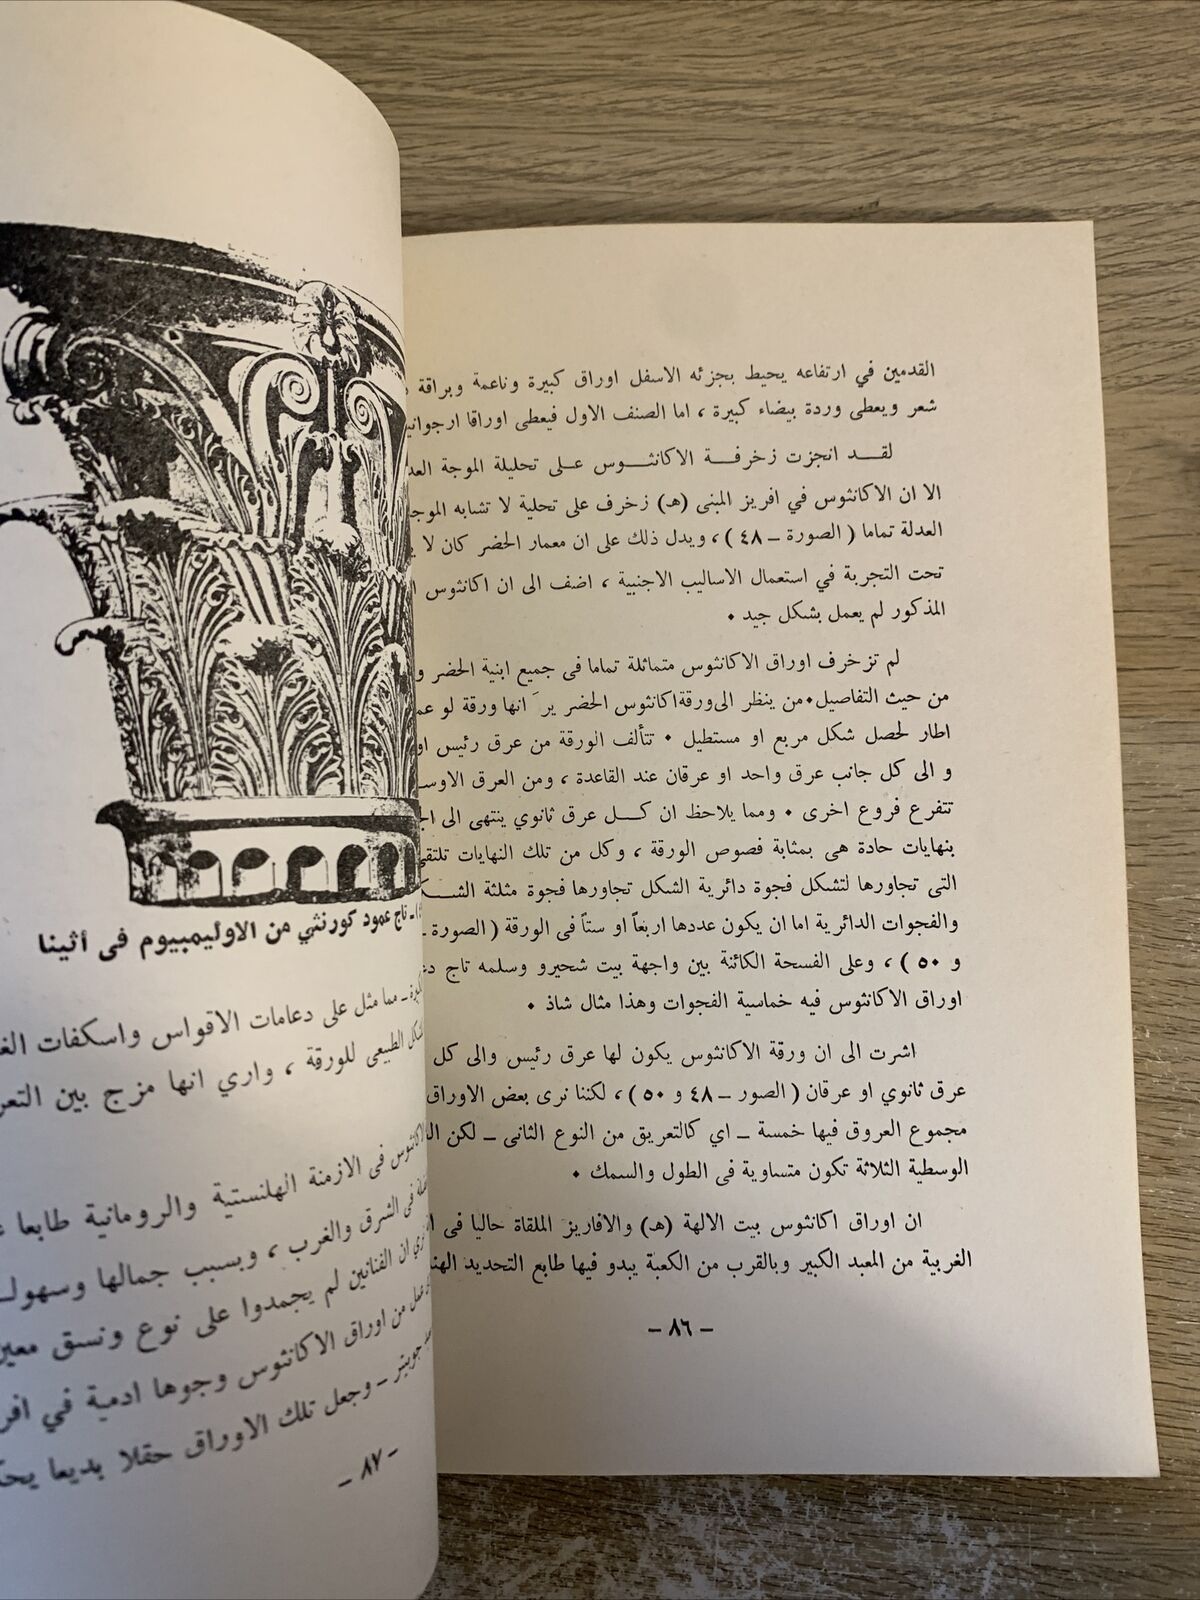 القدمين في ارتفاعه يحيط بجزئه الاسفل اوراق كبيرة وناعمة وبراقة
شعر ويعطى وردة بيضاء كبيرة ، اما الصنف الاول فيعطى اوراقا ارجواني
لقـــد انجزت زخرفــة الاكانثــوس علــى تحليلة الموجة العد
الا ان الاكانثوس في افريز المبنى (هـ) زخرف على تحلية لا تشابه الموج
العدلة تماما ( الصورة ــ ٤٨ ) ، ويدل ذلك على ان معمار الحضر كان لا
تحت التجربة في استعمال الاساليب الاجنبية ، اضف الى ان اكانثوس
المذكور لم يعمل بشكل جيد ٠
لم تزخرف اوراق الاكانثوس متماثلة تماما فى جميع ابنية الحضر و
من حيث التفاصيل٠من ينظر الى ورقة اكانثوس الحضر يرَ انها ورقة لو عم
اطار لحصل شكل مربع او مستطيل ٠ تتألف الورقة من عرق رئيس او
و الى كل جانب عرق واحد او عرقان عند القاعدة ، ومن العرق الاوس
تتفرع فروع اخرى ٠ ومما يلاحظ ان كــل عرق ثانوي ينتهى الى
بنهايات حادة هى بمثابة فصوص الورقة ، وكل من تلك النهايات تلتقى
التى تجاورها لتشكل فجوة دائرية الشكل تجاورها فجوة مثلثة الشـك
والفجوات الدائرية اما ان يكون عددها اربعاً او ستاً فى الورقة ( الصورة ــ
و ٥٠ ) ، وعلى الفسحة الكائنة بين واجهة بيت شحيرو وسلمه تاج
اوراق الاكانثوس فيه خماسية الفجوات وهذا مثال شاذ ٠
اشرت الى ان ورقة الاكانثوس يكون لها عرق رئيس والى كل
عرق ثانوي او عرقان ( الصور ــ ٤٨ و ٥٠ ) ، لكننا نرى بعض الاوراق
مجموع العروق فيها خمسة ــ اي كالتعريق من النوع الثانى ــ لكن
الوسطية الثلاثة تكون متساوية فى الطول والسمك ٠
ان اوراق اكانثوس بيت الالهة (هـ) والافاريز الملقاة حاليا فى
الغربية من المعبد الكبير وبالقرب من الكعبة يبدو فيها طابع التحديد الهن
ــ ٨٦ ــ
ــ تاج عمود كورنثي من الاوليمبيوم فى أثينا
ــ مما مثل على دعامات الاقواس واسكفات الغ
الطبيعى للورقة ، واري انها مزج بين التعر
فى الازمنة الهلنستية والرومانية طابعا
فى الشرق والغرب ، وبسبب جمالها وسهولــ
ان الفنانين لم يجمدوا على نوع ونسق معين
من اوراق الاكانثوس وجوها ادمية في افر
جوبيتر ــ وجعل تلك الاوراق حقلا بديعا يحك
ــ ٨٧ ــ